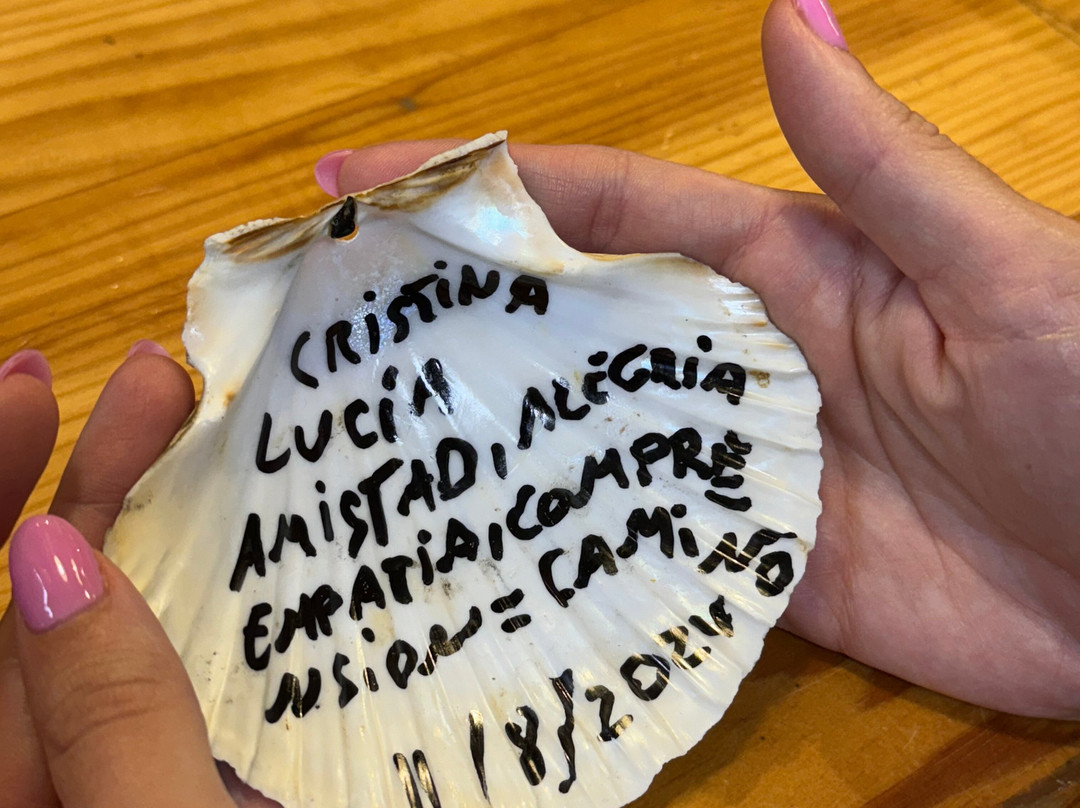 CRiSTiNA
LUCíA
AMiSTAD, ALEGRiA
EMPATiA, COMPRE
NSiON = CAMiNO
11/8/2024